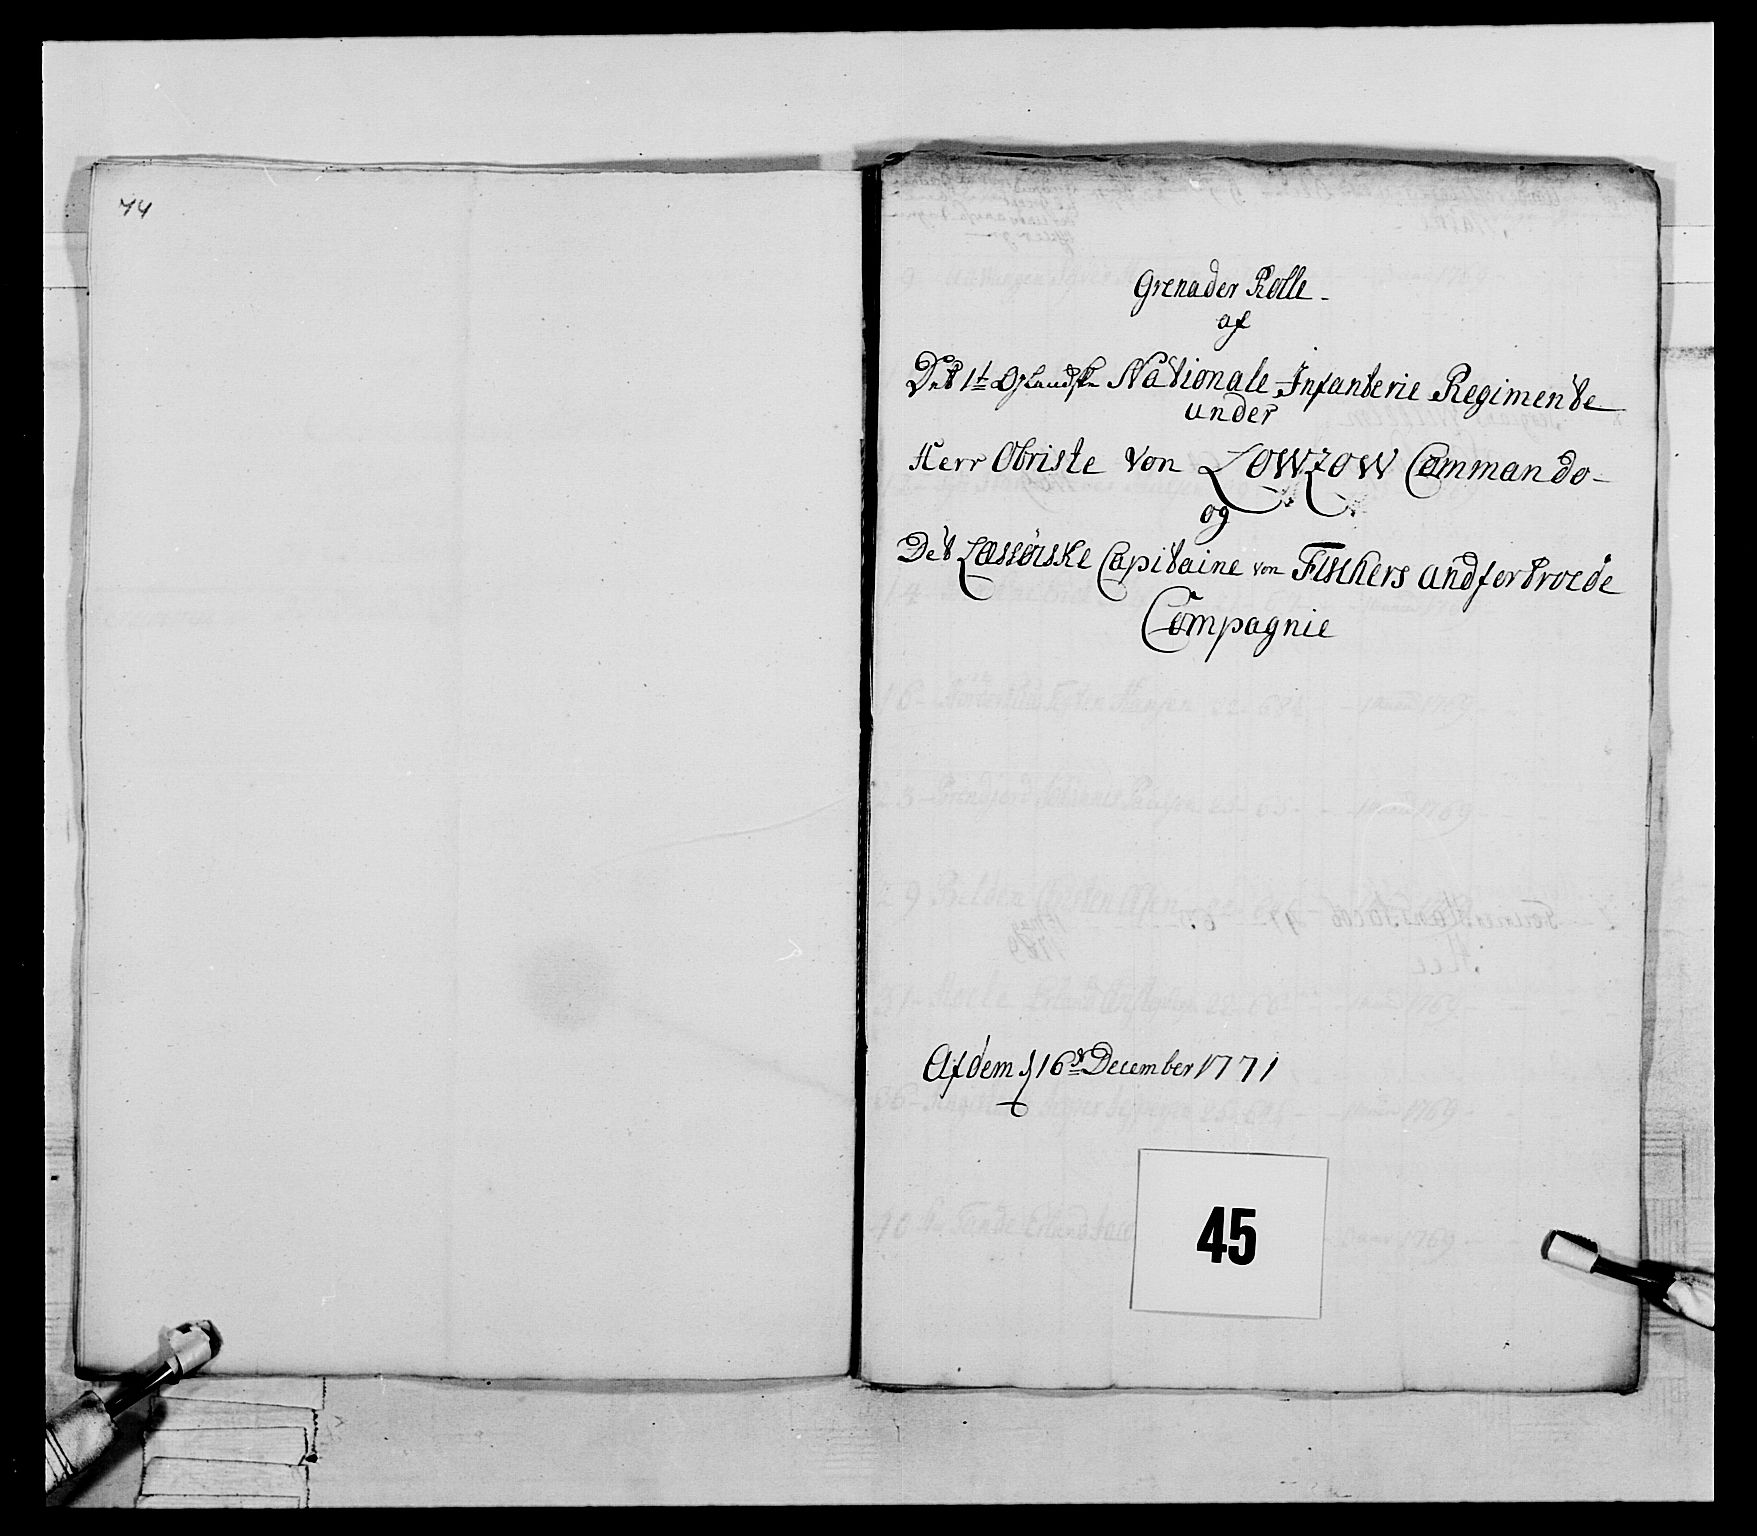 74
Grenader Rolle
af
Det 1t Oplandske Nationale Infanterie Regimente
under
Herr Obriste Von LOWZOW Commando
og
Det Læssøiske Capitaine von Fischers andfortroede
Compagnie
Af dem 16d December 1771
45